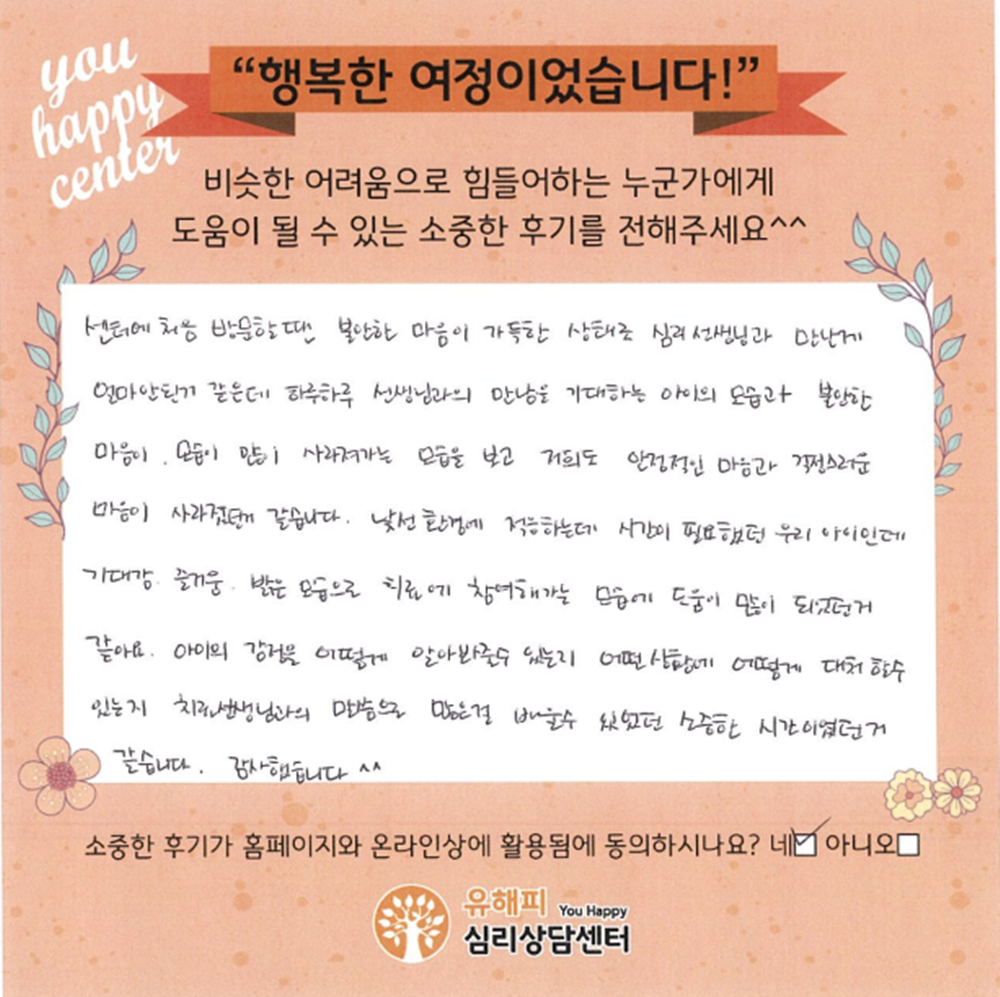 you
happy
center
“행복한 여정이었습니다!”
비슷한 어려움으로 힘들어하는 누군가에게
도움이 될 수 있는 소중한 후기를 전해주세요^^
센터에 처음 방문할때만 불안한 마음이 가득한 상태로 심리선생님과 만난게
얼마안된거 같은데 하루하루 선생님과의 만남을 기대하는 아이의 모습과 불안한
마음이. 모습이 많이 사라져가는 모습을 보고 저희도 안정적인 마음과 걱정스러운
마음이 사라졌던게 같습니다. 낯선 환경에 적응하는데 시간이 필요했던 우리 아이인데
기대감. 즐거움. 밝은 모습으로 치료에 참여해가는 모습에 도움이 많이 되었던거
같아요. 아이의 감정을 어떻게 알아봐줄수 있는지 어떤상황에 어떻게 대처 할수
있는지 치료선생님과의 말씀으로 많은걸 배울수 있었던 소중한 시간이였던거
같습니다. 감사했습니다 ^^
소중한 후기가 홈페이지와 온라인상에 활용됨에 동의하시나요? 네☑ 아니오□
유해피 You Happy
심리상담센터